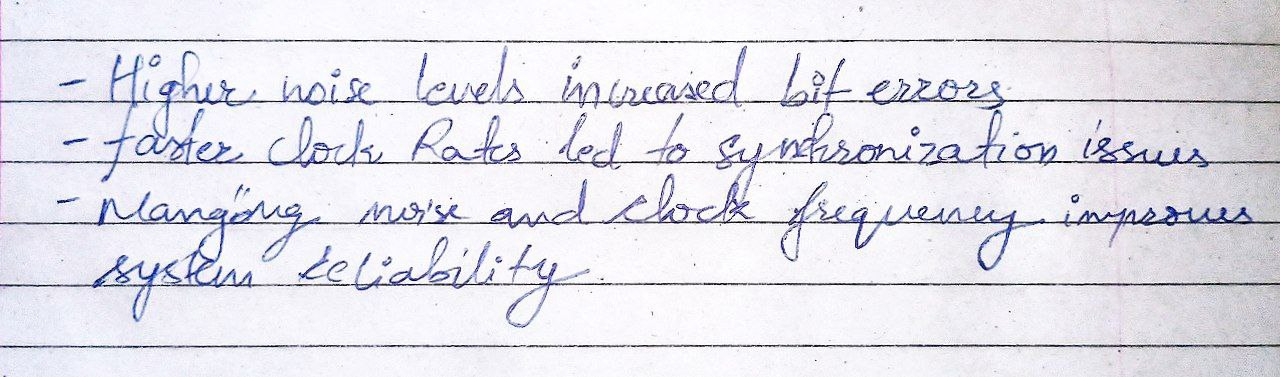 - Higher noise levels increased bit errors
- faster clock Rates led to synchronization issues
- Manging noise and clock frequency improves
system reliability